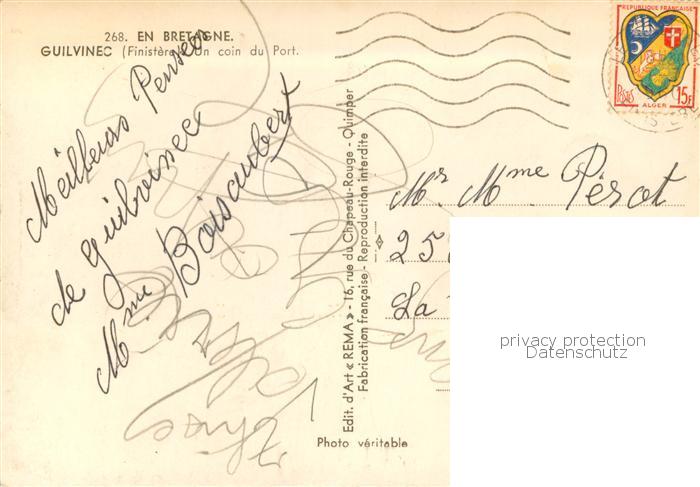 268. EN BRETAGNE.
GUILVINEC (Finistère) Un coin du Port.
Meilleures Pensées
de Guilvinec
Mme Boisaubert
Edit. d'Art « REMA » - 16, rue du Chapeau-Rouge - Quimper
Fabrication française - Reproduction interdite
Photo véritable
REPUBLIQUE FRANÇAISE
POSTES
15F
ALGER
Mr Mme Pérot
25
La
privacy protection
Datenschutz